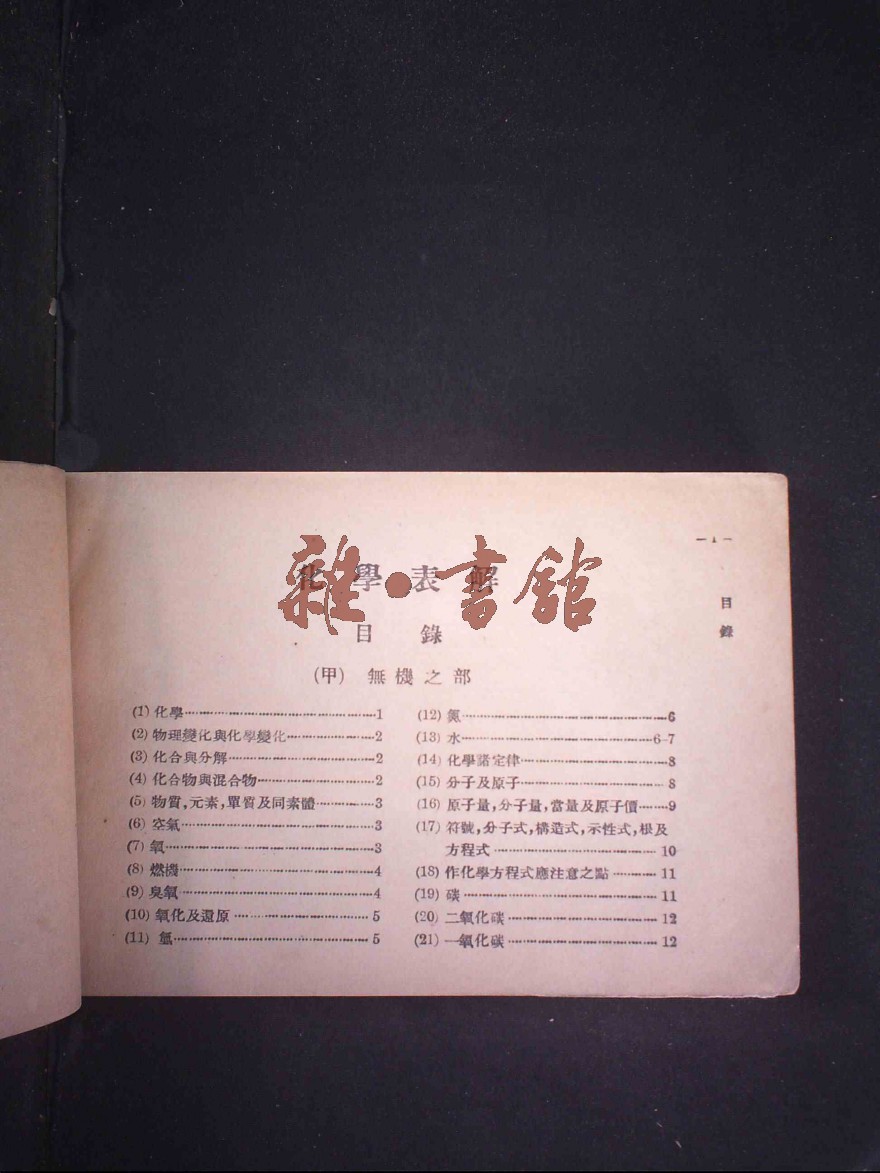 — 1 —
目錄
化學表解
雜·書館
目錄
(甲) 無機之部
(1) 化學…………1
(2) 物理變化與化學變化…………2
(3) 化合與分解…………2
(4) 化合物與混合物…………2
(5) 物質,元素,單質及同素體…………3
(6) 空氣…………3
(7) 氧…………3
(8) 燃機…………4
(9) 臭氧…………4
(10) 氧化及還原…………5
(11) 氫…………5
(12) 氮…………6
(13) 水…………6-7
(14) 化學諸定律…………8
(15) 分子及原子…………8
(16) 原子量,分子量,當量及原子價…………9
(17) 符號,分子式,構造式,示性式,根及
方程式…………10
(18) 作化學方程式應注意之點…………11
(19) 碳…………11
(20) 二氧化碳…………12
(21) 一氧化碳…………12